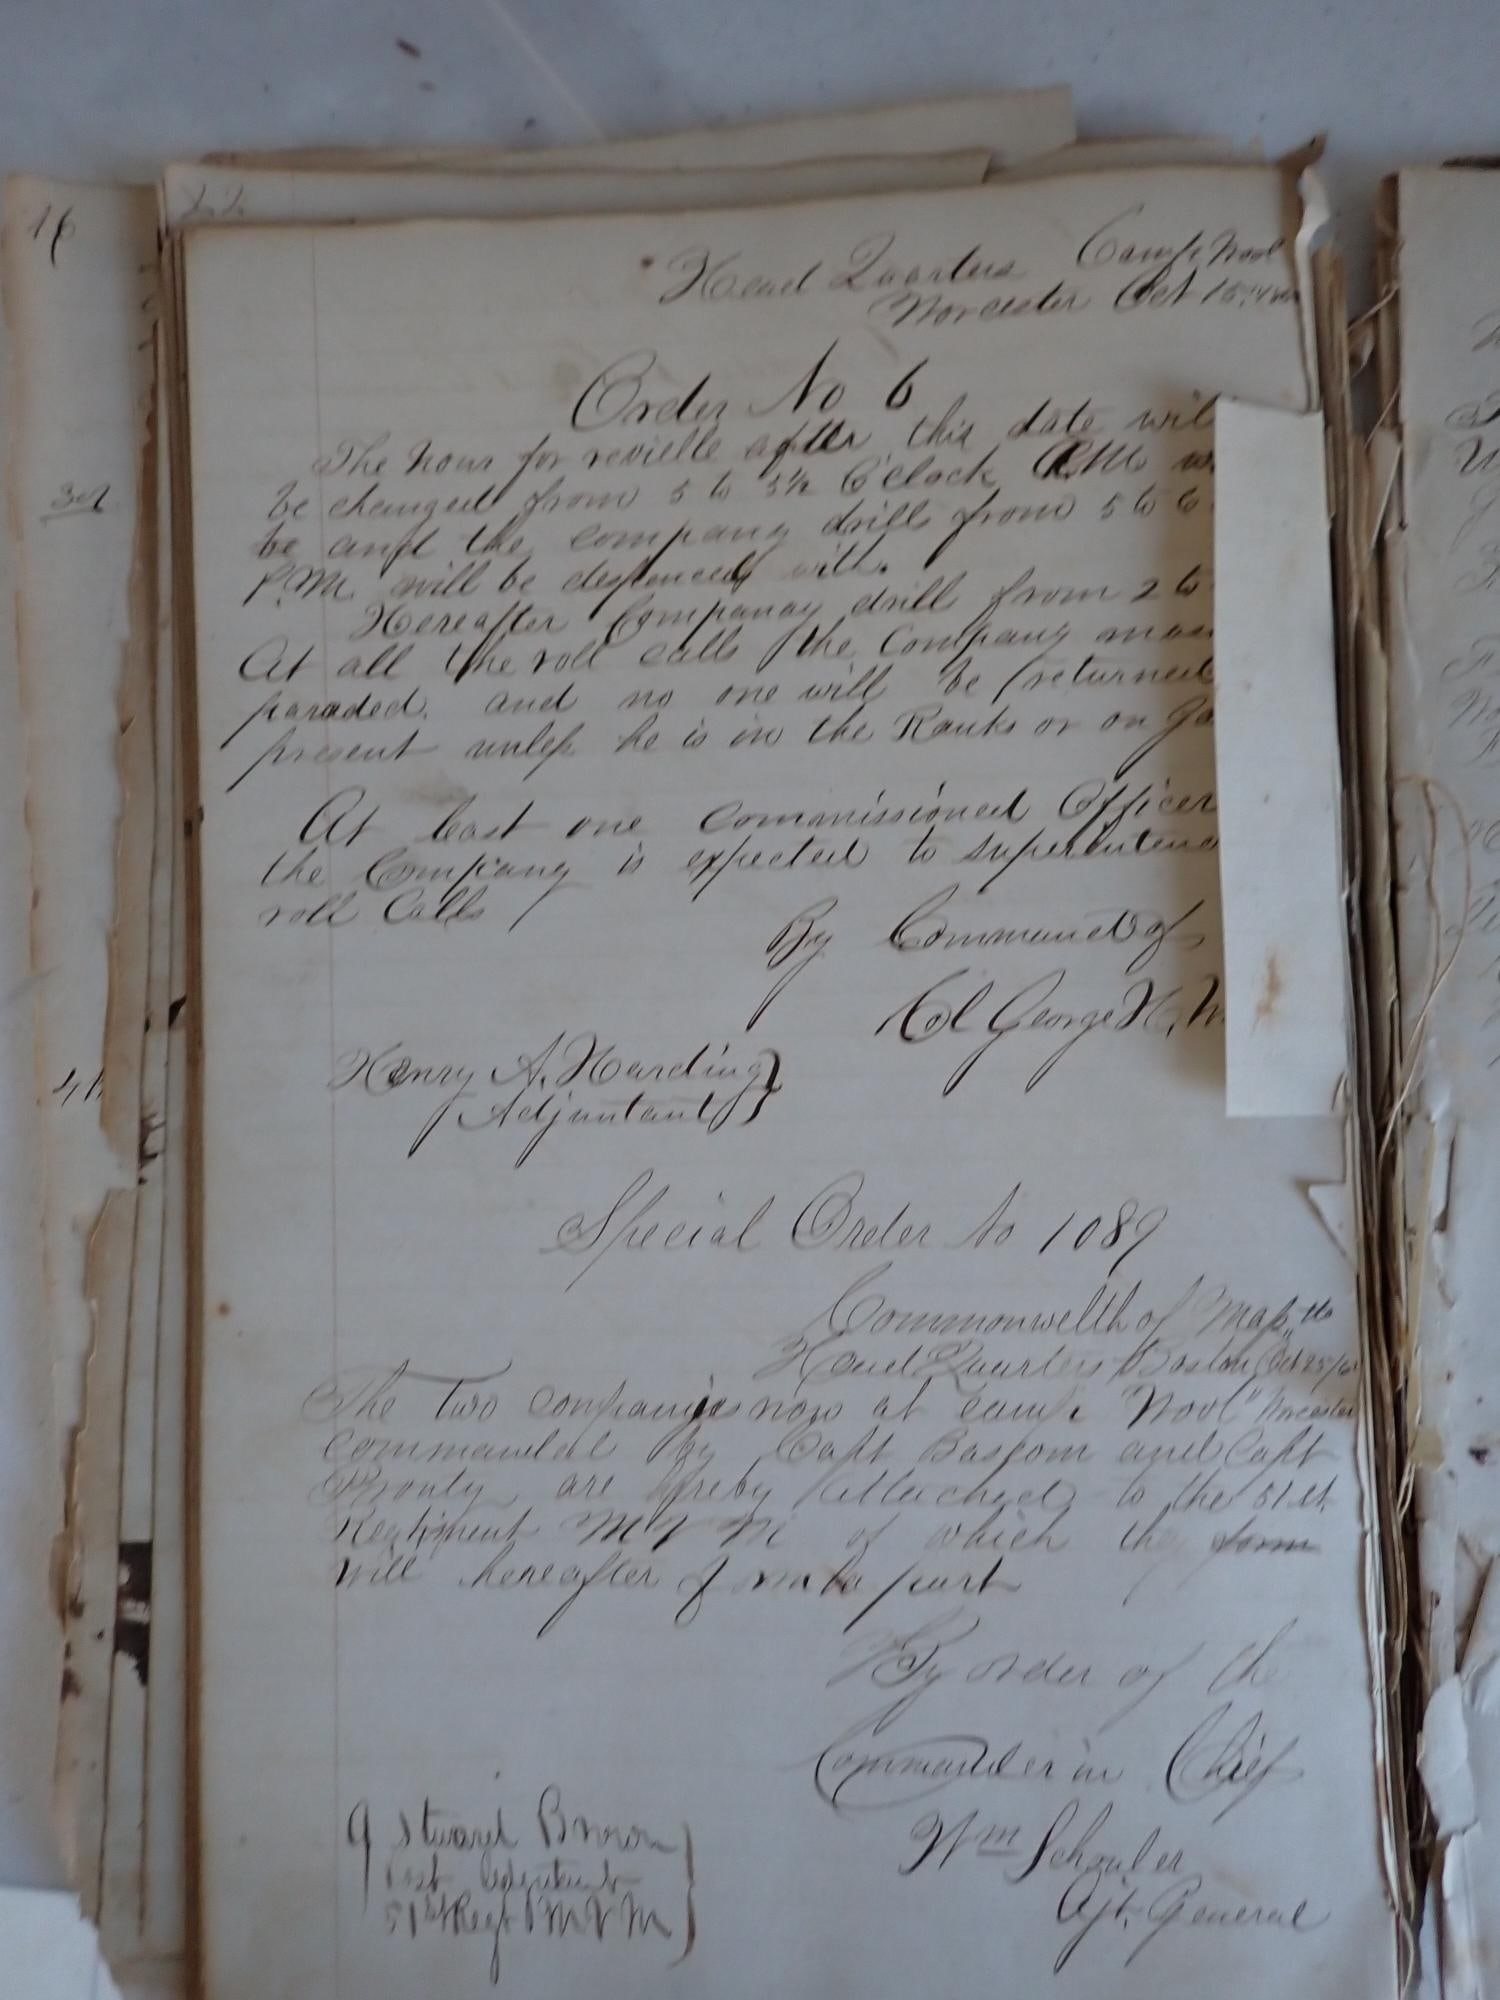 16
22
3d
Head Quarters Camp Wool
Worcester Oct 15
Order No 6
The hour for revielle after this date wil
be changed from 5 to 5½ O'clock
be and the company drills from 5 to 6
P.M. will be despenced with.
Hereafter Companay drill from 2 to
At all the roll calls the Company mus
paraded. and no one will be returned
present unless he is in the Ranks or on
At least one commissioned Officer
the Company is expected to superintend
roll Calls
By Command of
Col George H.
Henry A. Harding
Adjuntant
Special Order No 1089
Commonwelth of Mass
Head Quarters Boston Oct 25
The two companies now at camp "Wool" Worcester
commanded by Capt Bascom and Capt
Prouty are hereby attached to the 51 st
Regtiment M V M of which the form
will hereafter form a part
By order of the
Commander in Chief
Wm Schouler
Ajt. General
J Stward Brown
51st Regt M V M